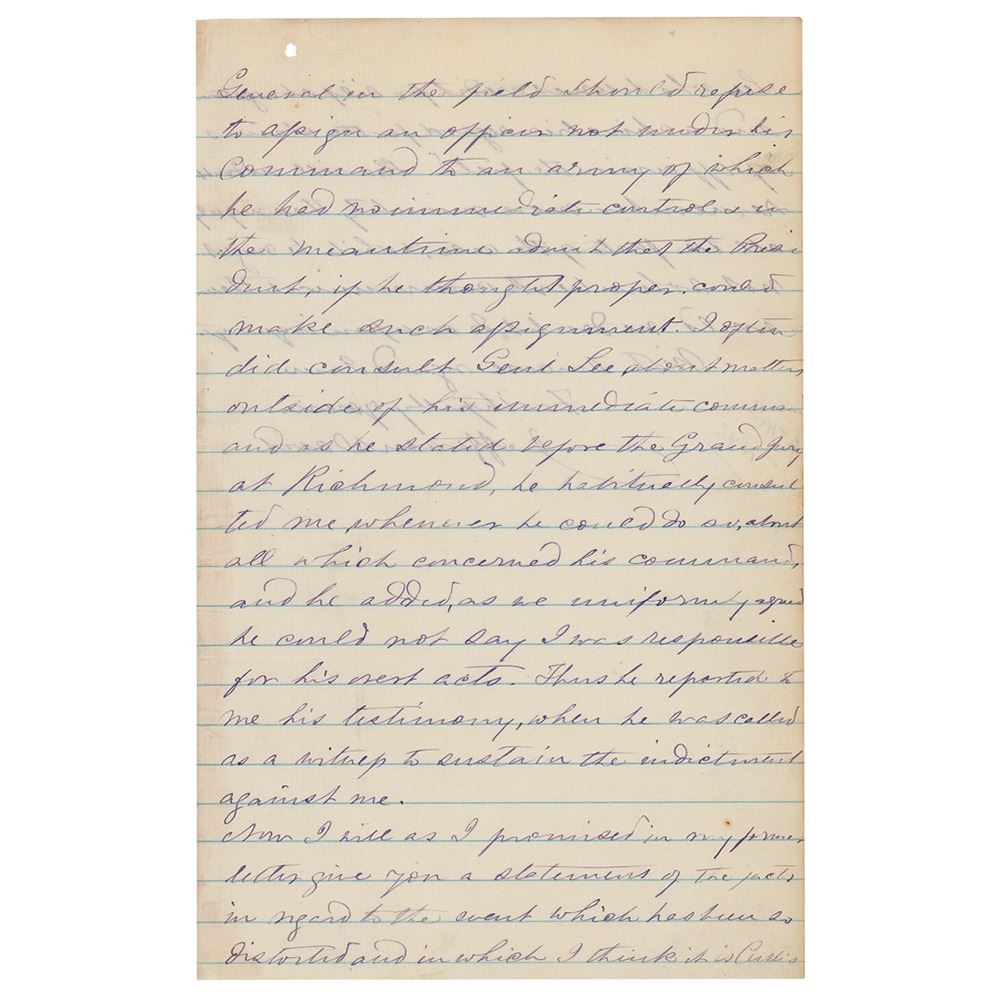 General in the field should refuse
to assign an officer not under his
Command to an army of which
he had no immediate control & in
the meantime admit that the Presi
dent, if he thought proper, could
make such assignment. I often
did consult Genl Lee, about matters
outside of his immediate comm
and as he stated before the Grand Jury
at Richmond, he habitually consul
ted me, whenever he could do so, about
all which concerned his command,
and he added, as we uniformly agreed
he could not say I was responsible
for his overt acts. Thus he reported to
me his testimony, when he was called
as a witness to sustain the indictment
against me.
Now I will as I promised in my former
letter give you a statement of the facts
in regard to the event which has been so
distorted and in which I think it is Curtis